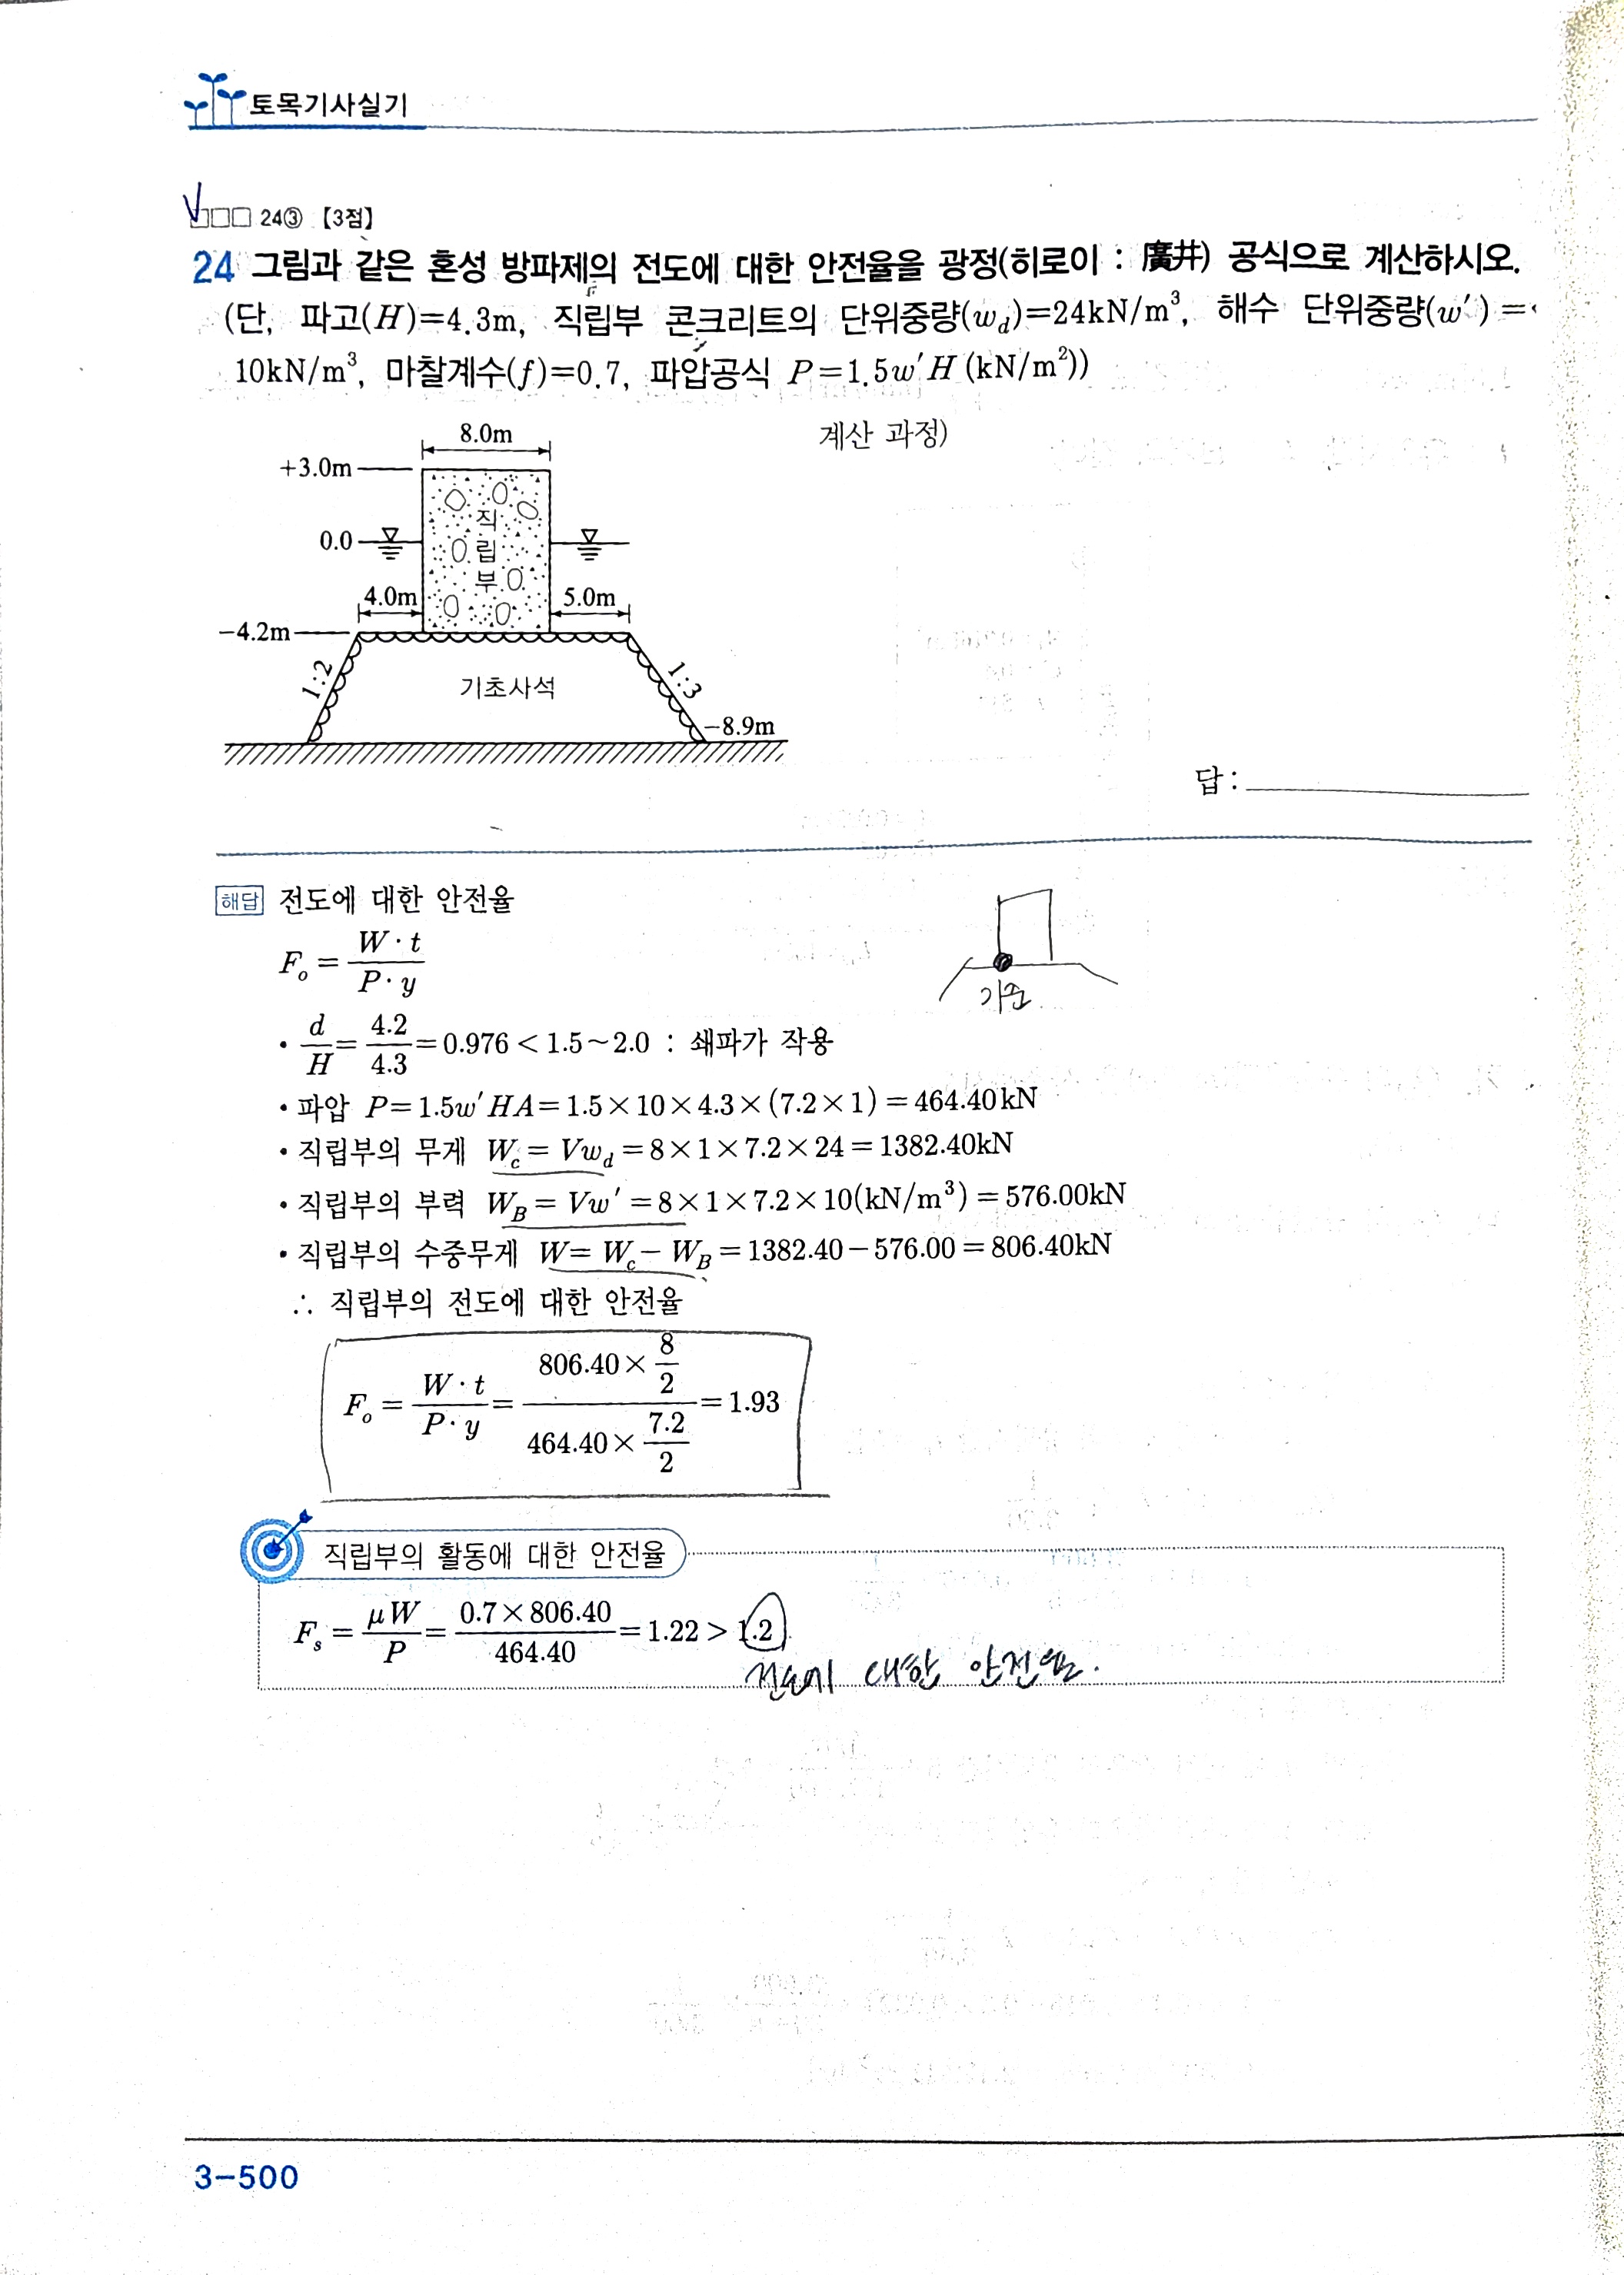 토목기사실기
24③ 【3점】
24 그림과 같은 혼성 방파제의 전도에 대한 안전율을 광정(히로이 : 廣井) 공식으로 계산하시오.
(단, 파고(H)=4.3m, 직립부 콘크리트의 단위중량(w_d)=24kN/m³, 해수 단위중량(w′)=
10kN/m³, 마찰계수(f)=0.7, 파압공식 P=1.5w′H (kN/m²))
계산 과정)
8.0m
+3.0m
직
0.0
립
부
4.0m
5.0m
-4.2m
1:2
기초사석
1:3
-8.9m
답 :
해답 전도에 대한 안전율
F_o = W·t / P·y
기준
· d/H = 4.2/4.3 = 0.976 < 1.5~2.0 : 쇄파가 작용
· 파압 P=1.5w′HA=1.5×10×4.3×(7.2×1)=464.40kN
· 직립부의 무게 W_c = Vw_d = 8×1×7.2×24 = 1382.40kN
· 직립부의 부력 W_B = Vw′ = 8×1×7.2×10(kN/m³) = 576.00kN
· 직립부의 수중무게 W = W_c − W_B = 1382.40−576.00 = 806.40kN
∴ 직립부의 전도에 대한 안전율
F_o = W·t / P·y = (806.40× 8/2) / (464.40× 7.2/2) = 1.93
직립부의 활동에 대한 안전율
F_s = μW/P = 0.7×806.40 / 464.40 = 1.22 > 1.2
전도에 대한 안전율.
3-500